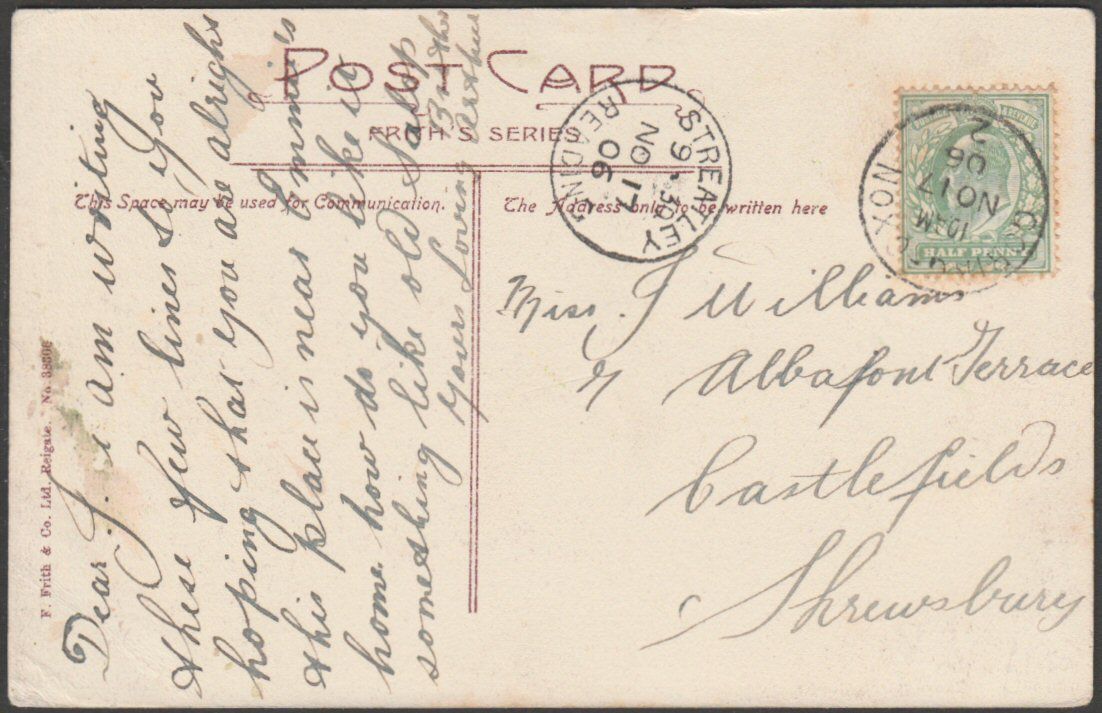 POST CARD
FRITH'S SERIES
This Space may be used for Communication.
The Address only to be written here
F. Frith & Co. Ltd., Reigate. No. 38306
Dear J. i am writing
these few lines to you
hoping that you are alright
this place is near Emmie's
home how do you like it
something like old Salop
Yours loving
Brother
Arthur
STREATLEY
9.30
NO 17
06
READING
2
06
NO 17
10 AM
OXON
HALF PENNY
Miss J Williams
7 Albafont Terrace
Castlefields
Shrewsbury